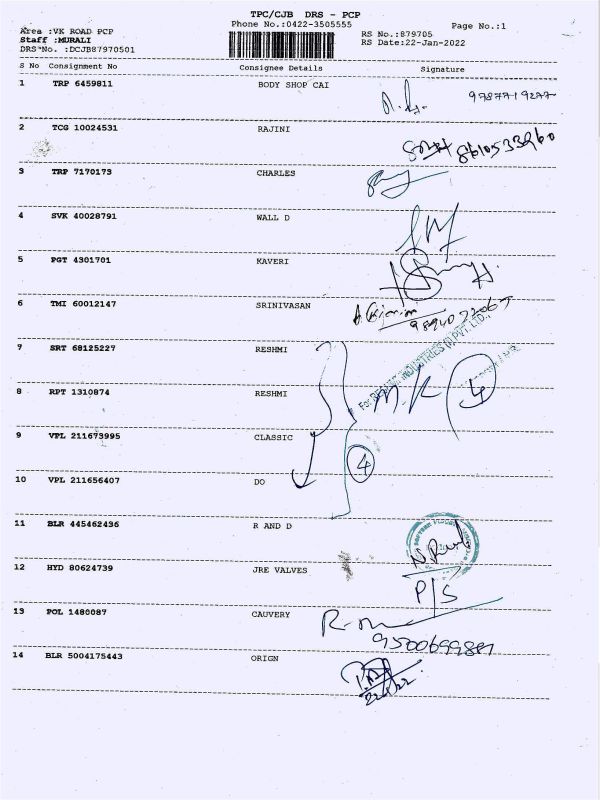 TPC/CJB DRS - PCP
Phone No.:0422-3505555
Page No.:1
Area :VK ROAD PCP
Staff :MURALI
DRS No. :DCJB87970501
RS No.:879705
RS Date:22-Jan-2022
S No Consignment No Consignee Details Signature
1 TRP 6459811 BODY SHOP CAI
2 TCG 10024531 RAJINI
8610533960
3 TRP 7170173 CHARLES
4 SVK 40028791 WALL D
5 PGT 4301701 KAVERI
6 TMI 60012147 SRINIVASAN
7 SRT 68125227 RESHMI
INDUSTRIES (I) PVT. LTD.,
8 RPT 1310874 RESHMI
4
9 VPL 211673995 CLASSIC
4
10 VPL 211656407 DO
11 BLR 445462436 R AND D
12 HYD 80624739 JRE VALVES
P/S
13 POL 1480087 CAUVERY
14 BLR 5004175443 ORIGN